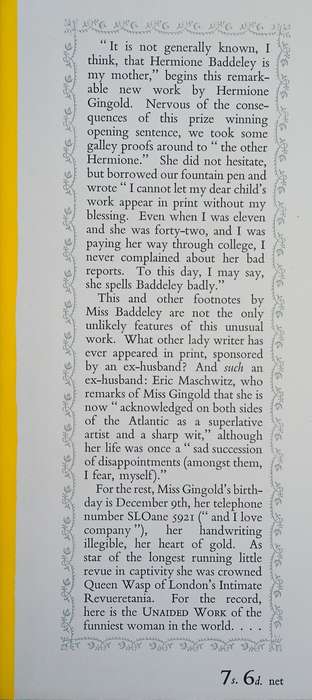 “ It is not generally known, I
think, that Hermione Baddeley is
my mother,” begins this remark-
able new work by Hermione
Gingold. Nervous of the conse-
quences of this prize winning
opening sentence, we took some
galley proofs around to “ the other
Hermione.” She did not hesitate,
but borrowed our fountain pen and
wrote “ I cannot let my dear child’s
work appear in print without my
blessing. Even when I was eleven
and she was forty-two, and I was
paying her way through college, I
never complained about her bad
reports. To this day, I may say,
she spells Baddeley badly.”
This and other footnotes by
Miss Baddeley are not the only
unlikely features of this unusual
work. What other lady writer has
ever appeared in print, sponsored
by an ex-husband? And such an
ex-husband: Eric Maschwitz, who
remarks of Miss Gingold that she is
now “ acknowledged on both sides
of the Atlantic as a superlative
artist and a sharp wit,” although
her life was once a “ sad succession
of disappointments (amongst them,
I fear, myself).”
For the rest, Miss Gingold’s birth-
day is December 9th, her telephone
number SLOane 5921 (“ and I love
company ”), her handwriting
illegible, her heart of gold. As
star of the longest running little
revue in captivity she was crowned
Queen Wasp of London’s Intimate
Revueretania. For the record,
here is the UNAIDED WORK of the
funniest woman in the world. . . .
7s. 6d. net